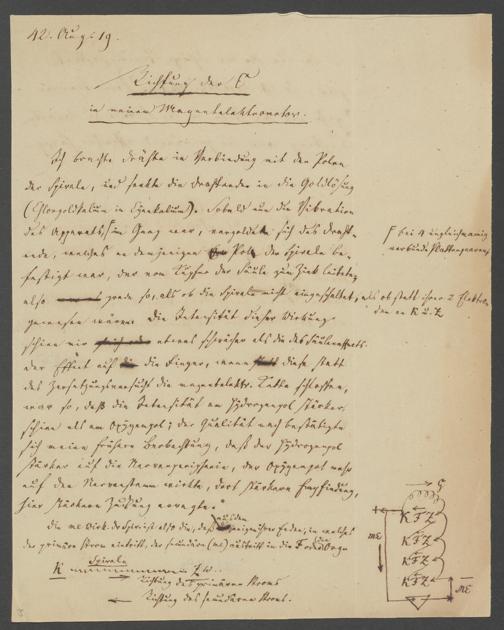 42. Aug. 19.
Richtung der E
in meinem Magnetelektromotor.
Ich brachte Drähte in Verbindung mit den Polen
der Spirale, und senkte die Drahtenden in die Goldlösung
(Chlorgoldkalium in Cyankalium). Sobald nun die Vibration
des Apparats im Gang war, vergoldete sich das Draht-
ende, welches an demjenigen Pole der Spirale be-
festigt war, der vom Kupfer der Säule zum Zink leitete,
also grade so, als ob die Spirale nicht eingeschaltet, als ob statt ihrer 2 Elektroden
gewesen wären. Die Intensität dieser Wirkung
schien mir etwas schwächer als die des Säuleneffekts.
Der Effekt auf die Finger, wenn diese statt
des Zersetzungsversuchs die magnetelektr. Kette schlossen,
war so, daß die Intensität am Hydrogenpol stärker
schien als am Oxygenpol; der Qualität nach bestätigte
sich meine frühere Beobachtung, daß der Hydrogenpol
stärker auf die Nervenperipherie, der Oxygenpol mehr
auf den Nervenstamm wirkte, dort stärkere Empfindung,
hier stärkere Zuckung erregte.
bei 4 ungleichnamig
verbundenen Plattenpaaren
an K u. Z
die Wirk. der Spirale ist also die, daß aus dem Ende, in welches
der primäre Strom eintritt, der secundäre (me) austritt in die
Spirale
K Z
Richtung des primären Stroms
Richtung des secundären Stroms.
K F Z
K F Z
K F Z
K F Z
mE
mE